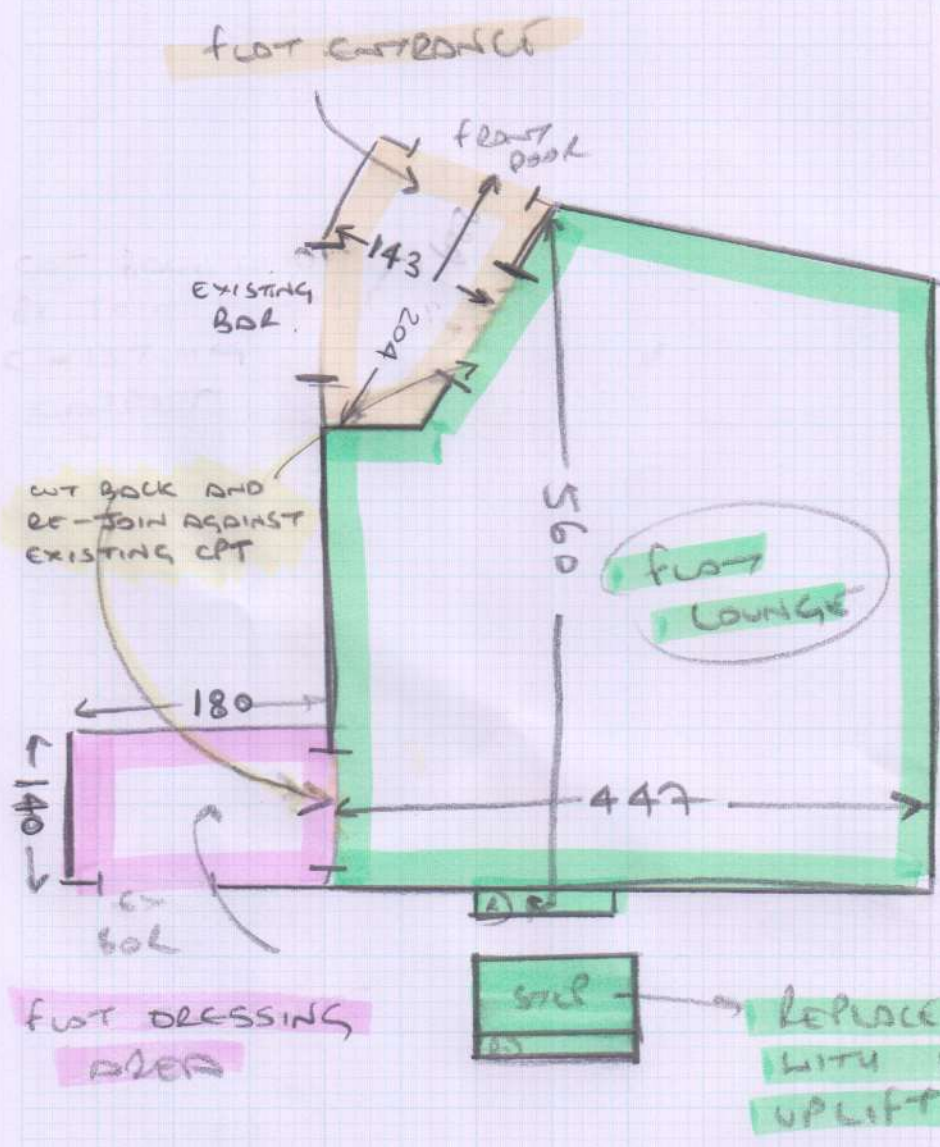 FLAT ENTRANCE
FRONT
DOOR
143
204
EXISTING
BAR.
CUT BACK AND
RE-JOIN AGAINST
EXISTING CPT
560
FLAT
LOUNGE
180
140
447
EX
BAR
FLAT DRESSING
AREA
STEP
REPLACE
WITH
UPLIFT